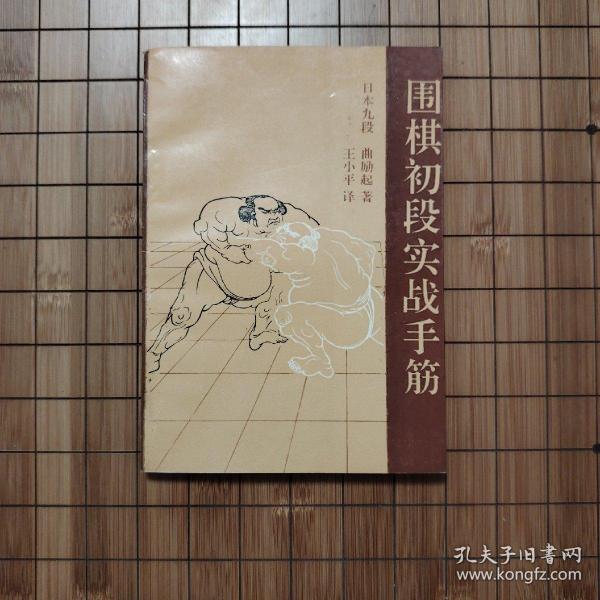 围棋初段实战手筋
日本九段 曲励起 著
王小平 译
孔夫子旧书网
www.kongfz.com